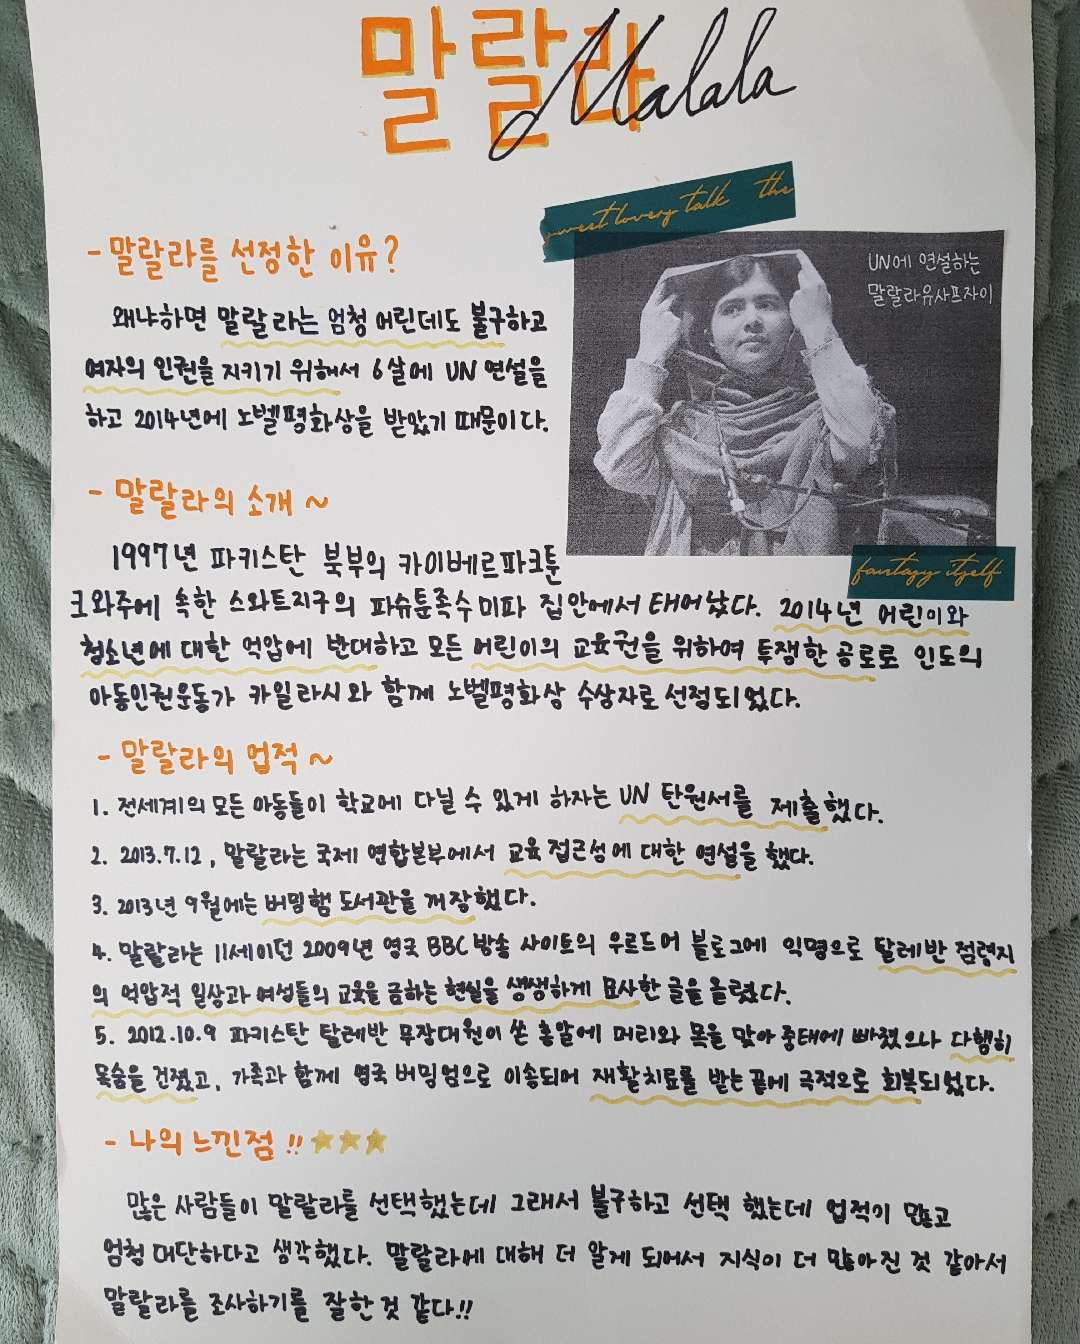 말랄라
Malala
west lovery talk the
- 말랄라를 선정한 이유?
UN에 연설하는
말랄라유사프자이
왜냐하면 말랄라는 엄청 어린데도 불구하고
여자의 인권을 지키기 위해서 6살에 UN 연설을
하고 2014년에 노벨평화상을 받았기 때문이다.
- 말랄라의 소개 ~
1997년 파키스탄 북부의 카이베르파크툰
fantasy itself
크와주에 속한 스와트지구의 파슈툰족수미파 집안에서 태어났다. 2014년 어린이와
청소년에 대한 억압에 반대하고 모든 어린이의 교육권을 위하여 투쟁한 공로로 인도의
아동인권운동가 카일라시와 함께 노벨평화상 수상자로 선정되었다.
- 말랄라의 업적 ~
1. 전세계의 모든 아동들이 학교에 다닐 수 있게 하자는 UN 탄원서를 제출했다.
2. 2013.7.12, 말랄라는 국제 연합본부에서 교육 접근성에 대한 연설을 했다.
3. 2013년 9월에는 버밍햄 도서관을 개장했다.
4. 말랄라는 11세이던 2009년 영국 BBC 방송 사이트의 우르드어 블로그에 익명으로 탈레반 점령지
의 억압적 일상과 여성들의 교육을 금하는 현실을 생생하게 묘사한 글을 올렸다.
5. 2012.10.9 파키스탄 탈레반 무장대원이 쏜 총알에 머리와 목을 맞아 중태에 빠졌으나 다행히
목숨을 건졌고, 가족과 함께 영국 버밍엄으로 이송되어 재활치료를 받는 끝에 극적으로 회복되었다.
- 나의 느낀점 !!
많은 사람들이 말랄라를 선택했는데 그래서 불구하고 선택 했는데 업적이 많고
엄청 대단하다고 생각했다. 말랄라에 대해 더 알게 되어서 지식이 더 많아진 것 같아서
말랄라를 조사하기를 잘한 것 같다!!